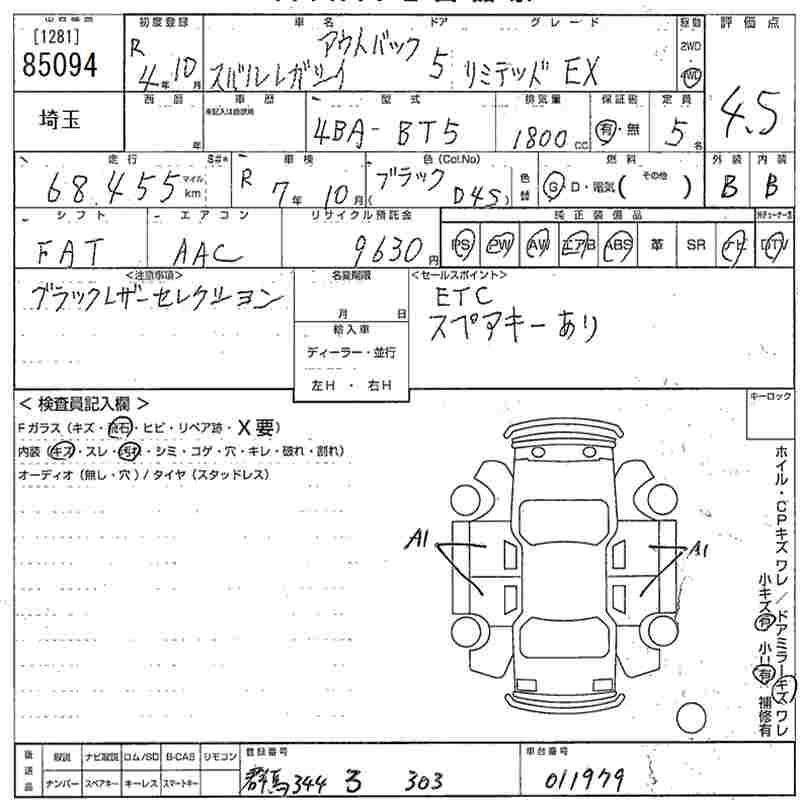 [1281]
85094
埼玉
初度登録
R 4年 10月
車名 ドア グレード
アウトバック
スバルレガシィ 5 リミテッド EX
駆動
2WD
4WD
評価点
4.5
西暦 年
車歴
未記入は自家用
型式
4BA-BT5
排気量
1800 CC
保証書
有・無
定員
5名
走行
68,455 マイル km
車検
R 7年 10月
色 (Col.No)
ブラック
( D4S)
色替
燃料
G・D・電気( その他 )
外装 内装
B B
シフト
FAT
エアコン
AAC
リサイクル預託金
9630円
純正装備品
PS PW AW エアB ABS 革 SR ナビ DTV
<注意事項>
ブラックレザーセレクション
名変期限
月 日
輸入車
ディーラー・並行
左H ・ 右H
<セールスポイント>
ETC
スペアキーあり
< 検査員記入欄 >
Fガラス (キズ・飛石・ヒビ・リペア跡・X要)
内装 (キズ・スレ・汚れ・シミ・コゲ・穴・キレ・破れ・割れ)
オーディオ (無し・穴) / タイヤ (スタッドレス)
キーロック
A1 A1
ホイル・CPキズ ワレ / ドアミラーキズ ワレ
小キズ有 小U有 補修有
後送品
取説 ナビ取説 ロム/SD B-CAS リモコン
ナンバー スペアキー キーレス スマートキー
登録番号
群馬 344 る 303
車台番号
011979